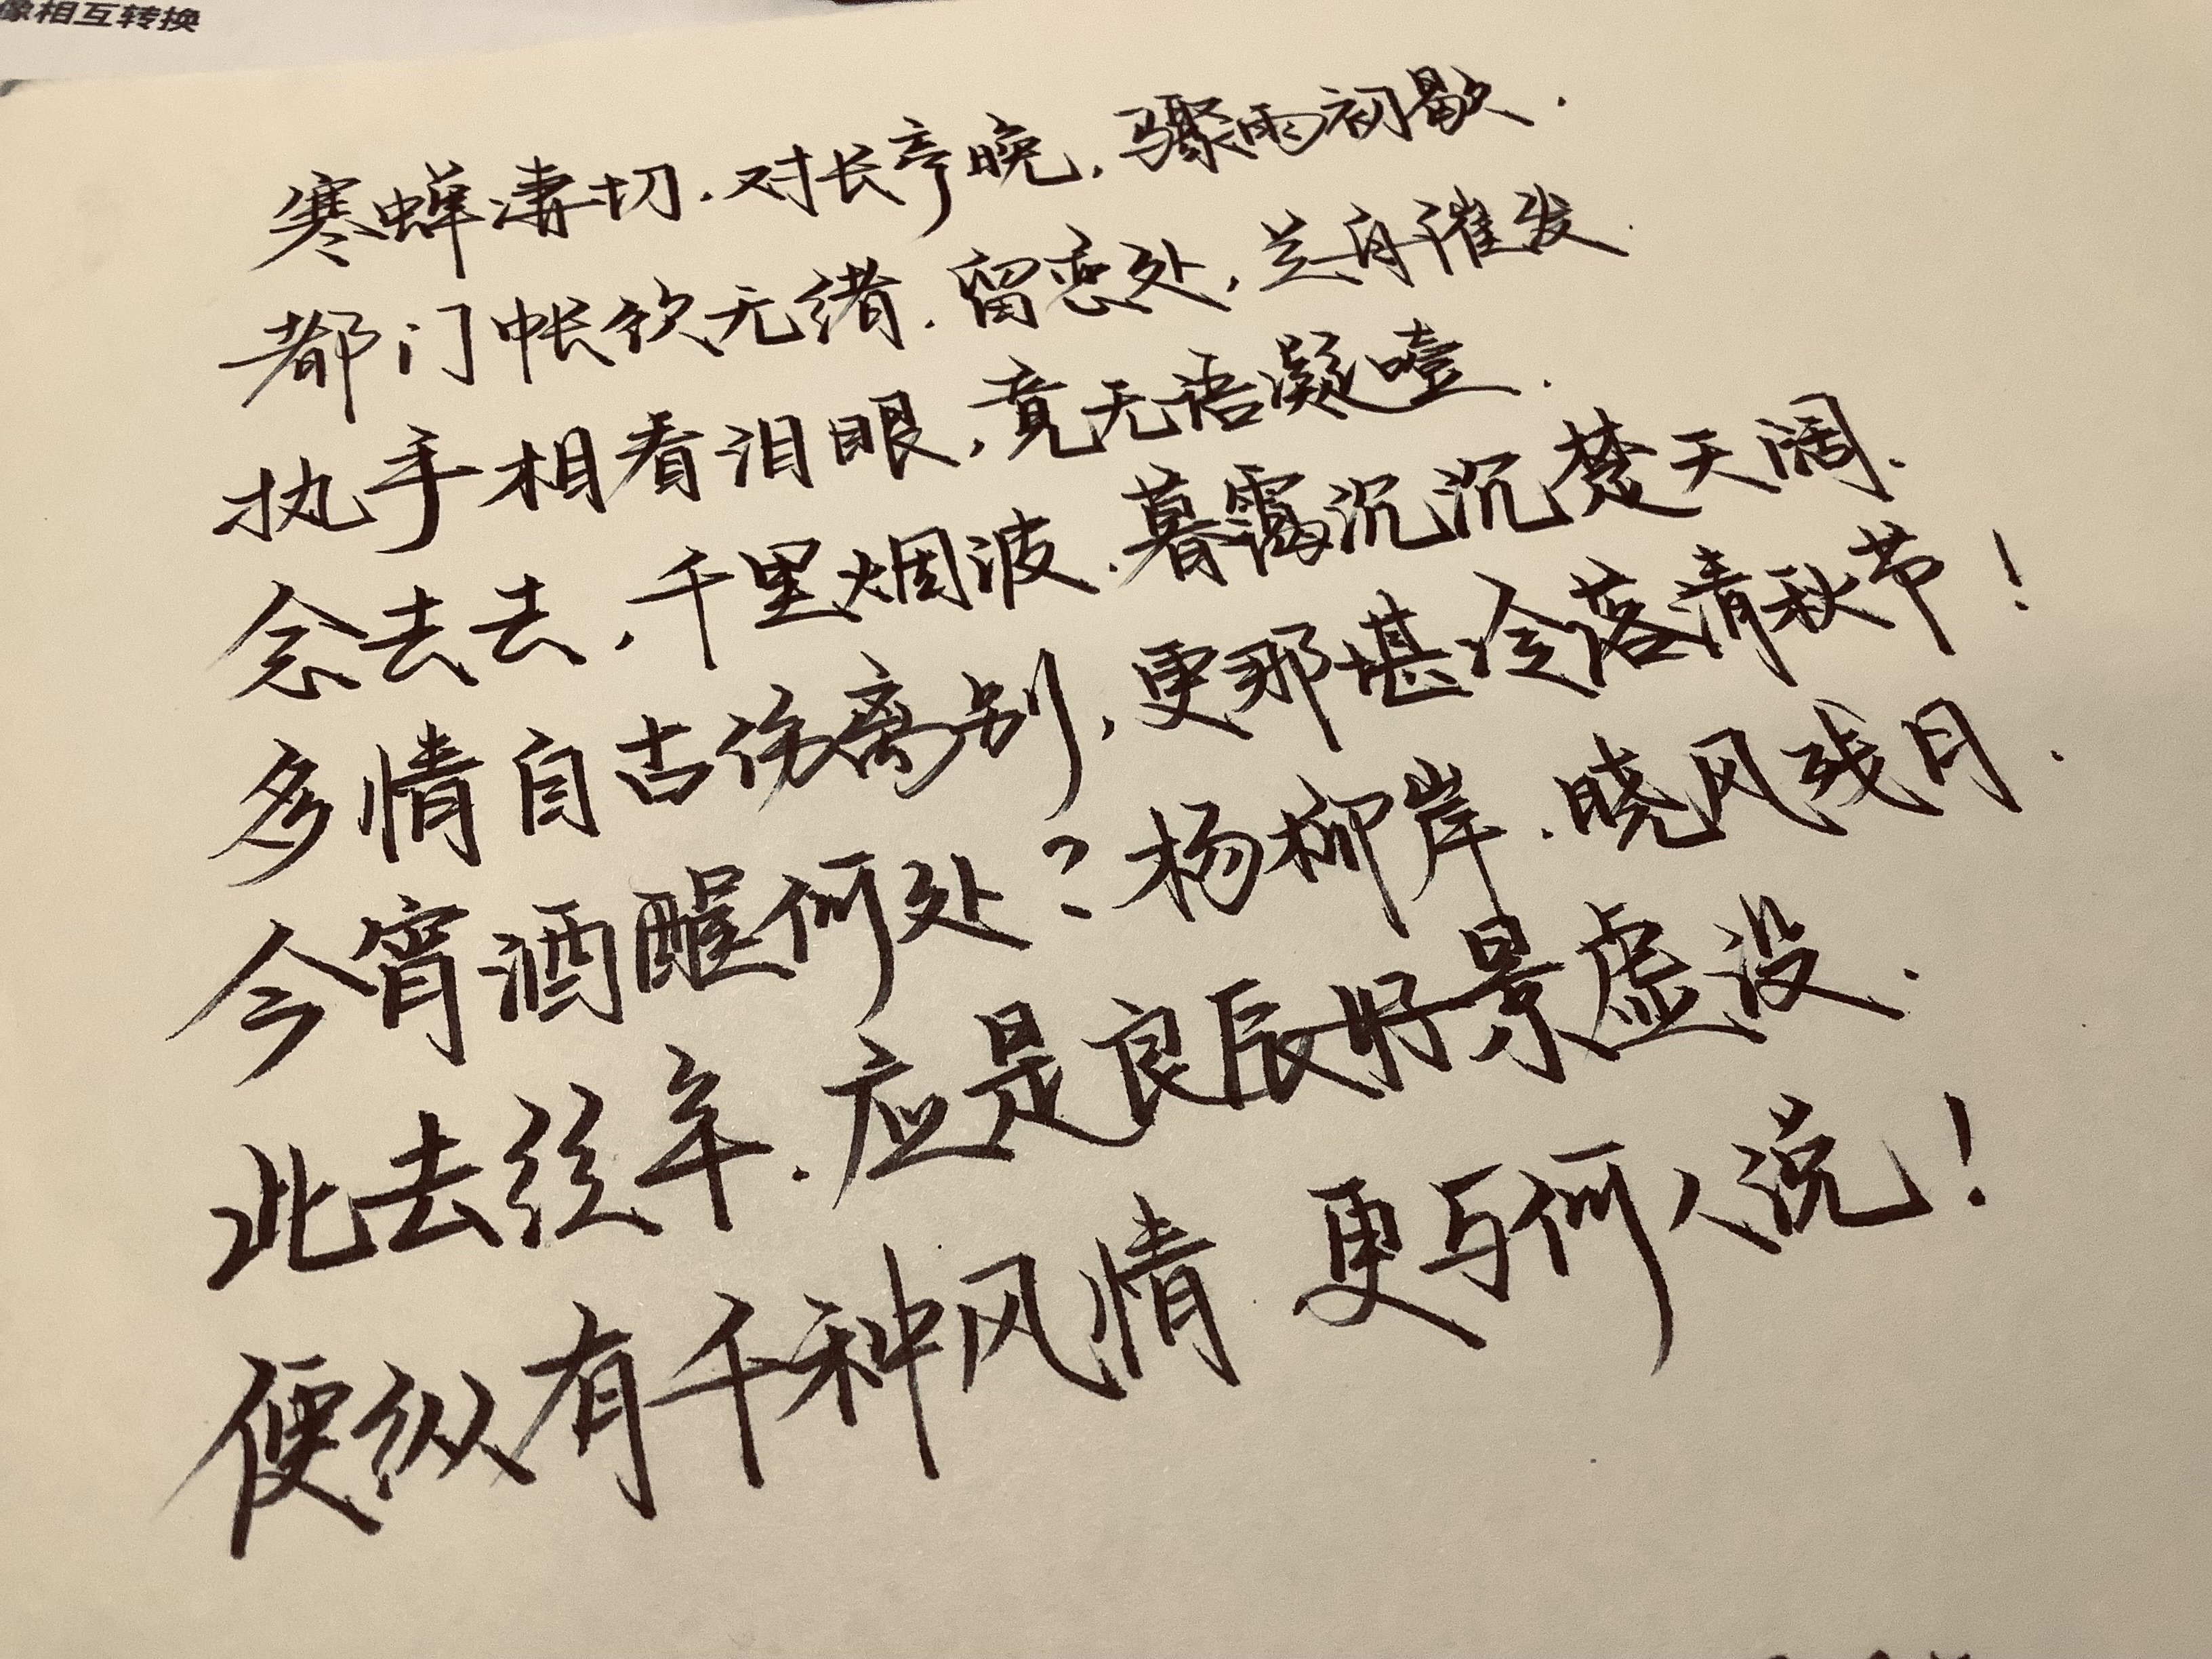 像相互转换
寒蝉凄切.对长亭晚,骤雨初歇.
都门帐饮无绪.留恋处,兰舟催发.
执手相看泪眼,竟无语凝噎.
念去去,千里烟波.暮霭沉沉楚天阔.
多情自古伤离别,更那堪冷落清秋节!
今宵酒醒何处?杨柳岸.晓风残月.
此去经年.应是良辰好景虚设.
便纵有千种风情 更与何人说!